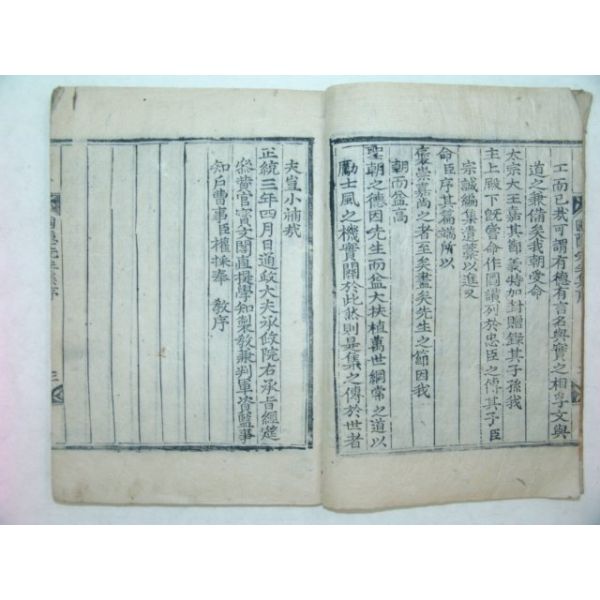 工而已哉可謂有德有言名與實之相孚文與
道之兼備矣我朝受命
太宗大王嘉其節義特加封贈錄其子孫我
主上殿下旣嘗命作圖讃列於忠臣之傳其子臣
宗誠編集遺藁以進又
命臣序其篇端所以
褒崇嘉尚之者至矣盡矣先生之節因我
朝而益高
聖朝之德因先生而益大扶植萬世綱常之道以
勵士風之機實關於此然則是集之傳於世者
夫豈小補哉
正統三年四月日通政大夫承政院右承旨經筵
叅賛官寶文閣直提學知製敎兼判軍資監事
知戶曹事臣權採奉 敎序